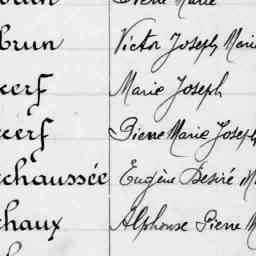 Pierre Marie
brun Victor Joseph Marie
cerf Marie Joseph
cerf Pierre Marie Joseph
chaussée Eugène Désiré M
chaux Alphonse Pierre M